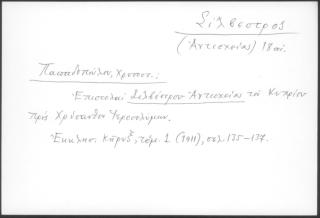 Σίλβεστρος
(Ἀντιοχείας) 18 αἰ.
Παπαδοπούλου, Χρυσοστ.:
Ἐπιστολαὶ Σιλβέστρου Ἀντιοχείας τοῦ Κυπρίου
πρὸς Χρύσανθον Ἱεροσολύμων.
Ἐκκλησ. Κῆρυξ, τόμ. 1 (1911), σελ. 135-137.